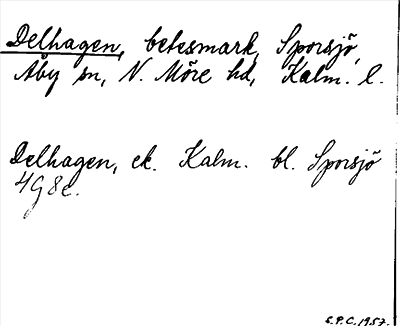 Delhagen, betesmark, Sporsjö,
Åby sn, N. Möre hd, Kalm. l.
Delhagen, ek. Kalm. bl. Sporsjö
4G8e.
E.P.C. 1957.